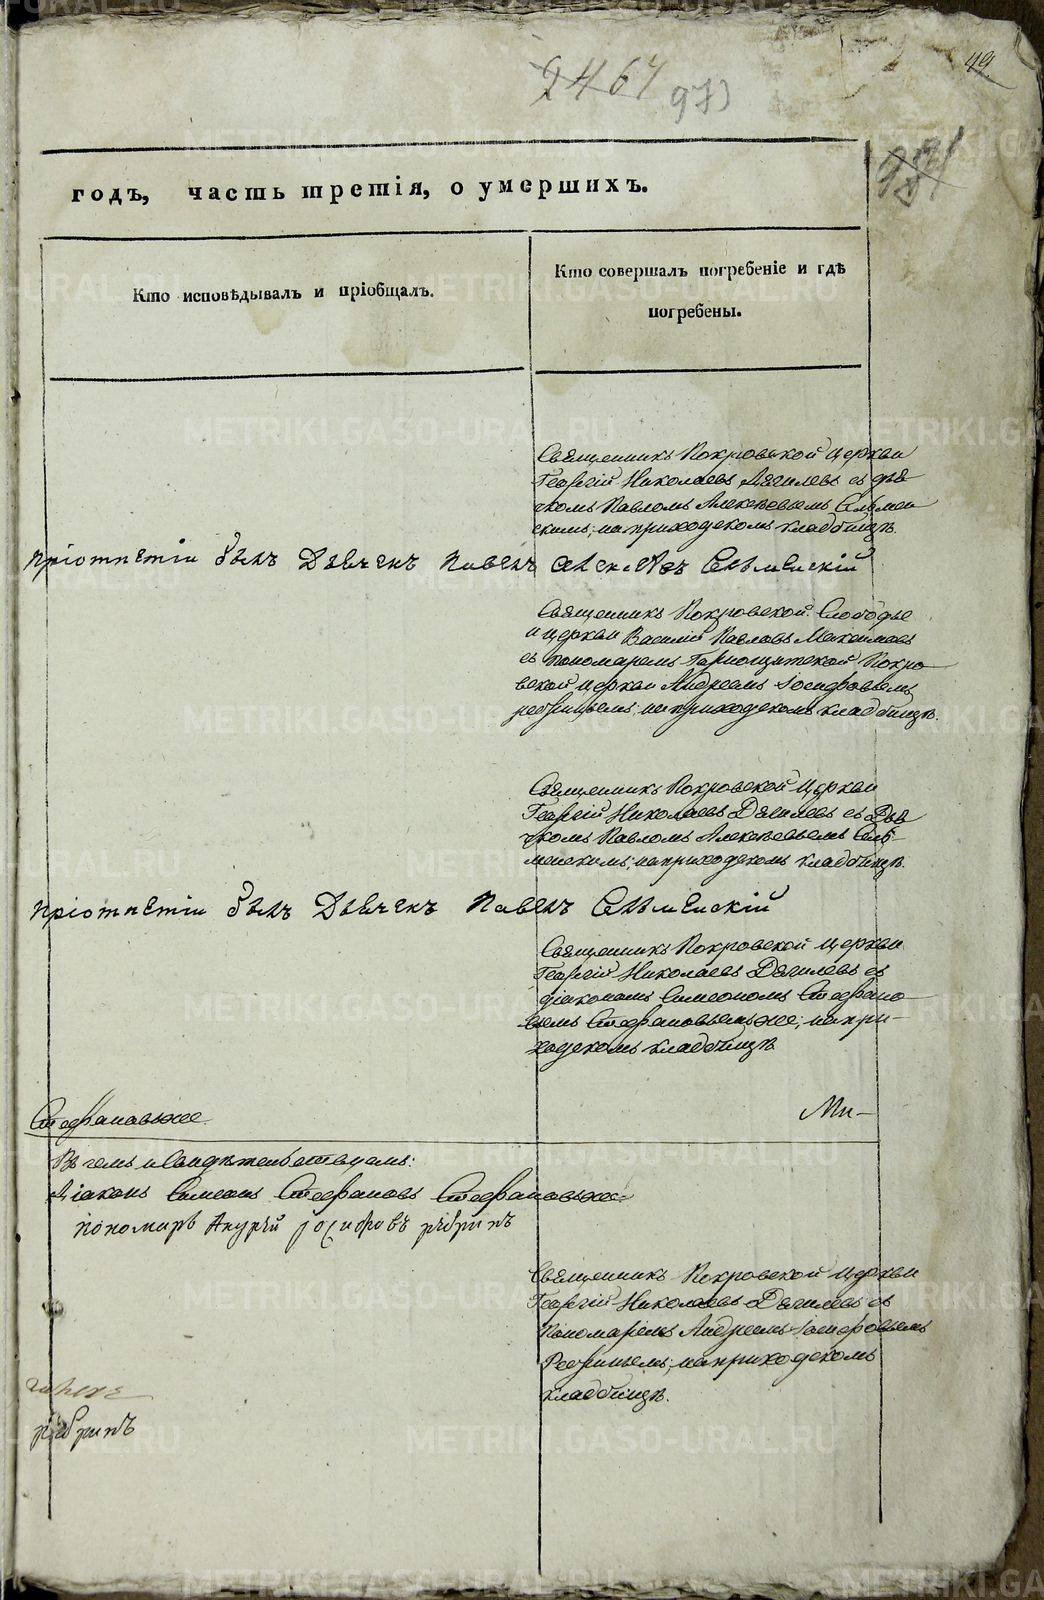 49
2467
973
годъ, часть третія, о умершихъ.
Кто исповѣдывалъ и пріобщалъ.
Кто совершалъ погребеніе и гдѣ
погребены.
Священникъ Покровской церкви
Георгій Николаевъ Дягилевъ съ дья
чкомъ Павломъ Алексѣевымъ Сельмен
скимъ; на приходскомъ кладбищѣ.
при отпетіи былъ Дьячекъ Павелъ
Священникъ Покровской Слободы
и церкви Василій Павловъ Максимовъ
съ пономаремъ Горнощитской Покро
вской церкви Андреемъ Іосифовымъ
на приходскомъ кладбищѣ.
Священникъ Покровской церкви
Георгій Николаевъ Дягилевъ съ Дья
чкомъ Павломъ Алексѣевымъ Сель
менскимъ; на приходскомъ кладбищѣ.
при отпетіи былъ Дьячекъ Павелъ
Священникъ Покровской церкви
Георгій Николаевъ Дягилевъ съ
діакономъ Симеономъ Стефано
вымъ Стефановымъ же; на при-
ходскомъ кладбищѣ
Стефановъ же
Ми-
Въ чемъ и Свидѣтельствуемъ:
Діаконъ Симеонъ Стефановъ Стефановъ же
пономарь Андрей Іосифовъ Ребринъ
Священникъ Покровской церкви
Георгій Николаевъ Дягилевъ съ
Пономаремъ Андреемъ Іосифовымъ
Ребринымъ; на приходскомъ
кладбищѣ.
Ребринъ
METRIKI.GASO-URAL.RU